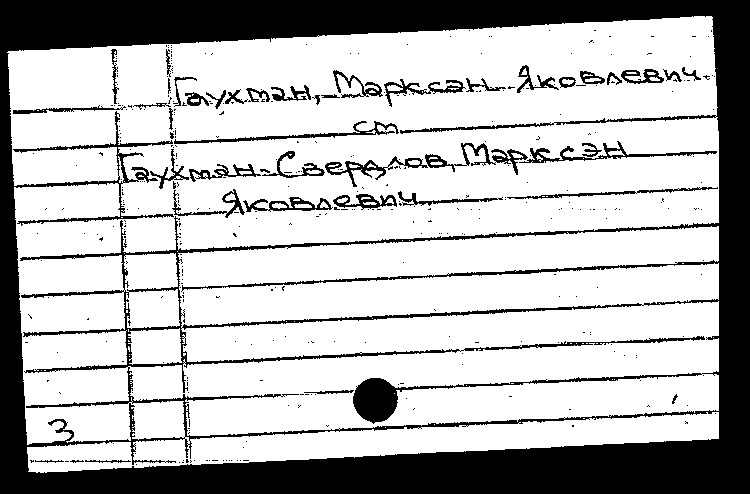 Гаухман, Марксэн Яковлевич
см
Гаухман-Свердлов, Марксэн
Яковлевич
3